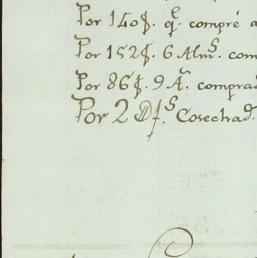 Por 140f. q.e compré a
Por 152f. 6 Alm.s com
Por 86f. 9 A.s comprad
Por 2 Df.s Cosechad.